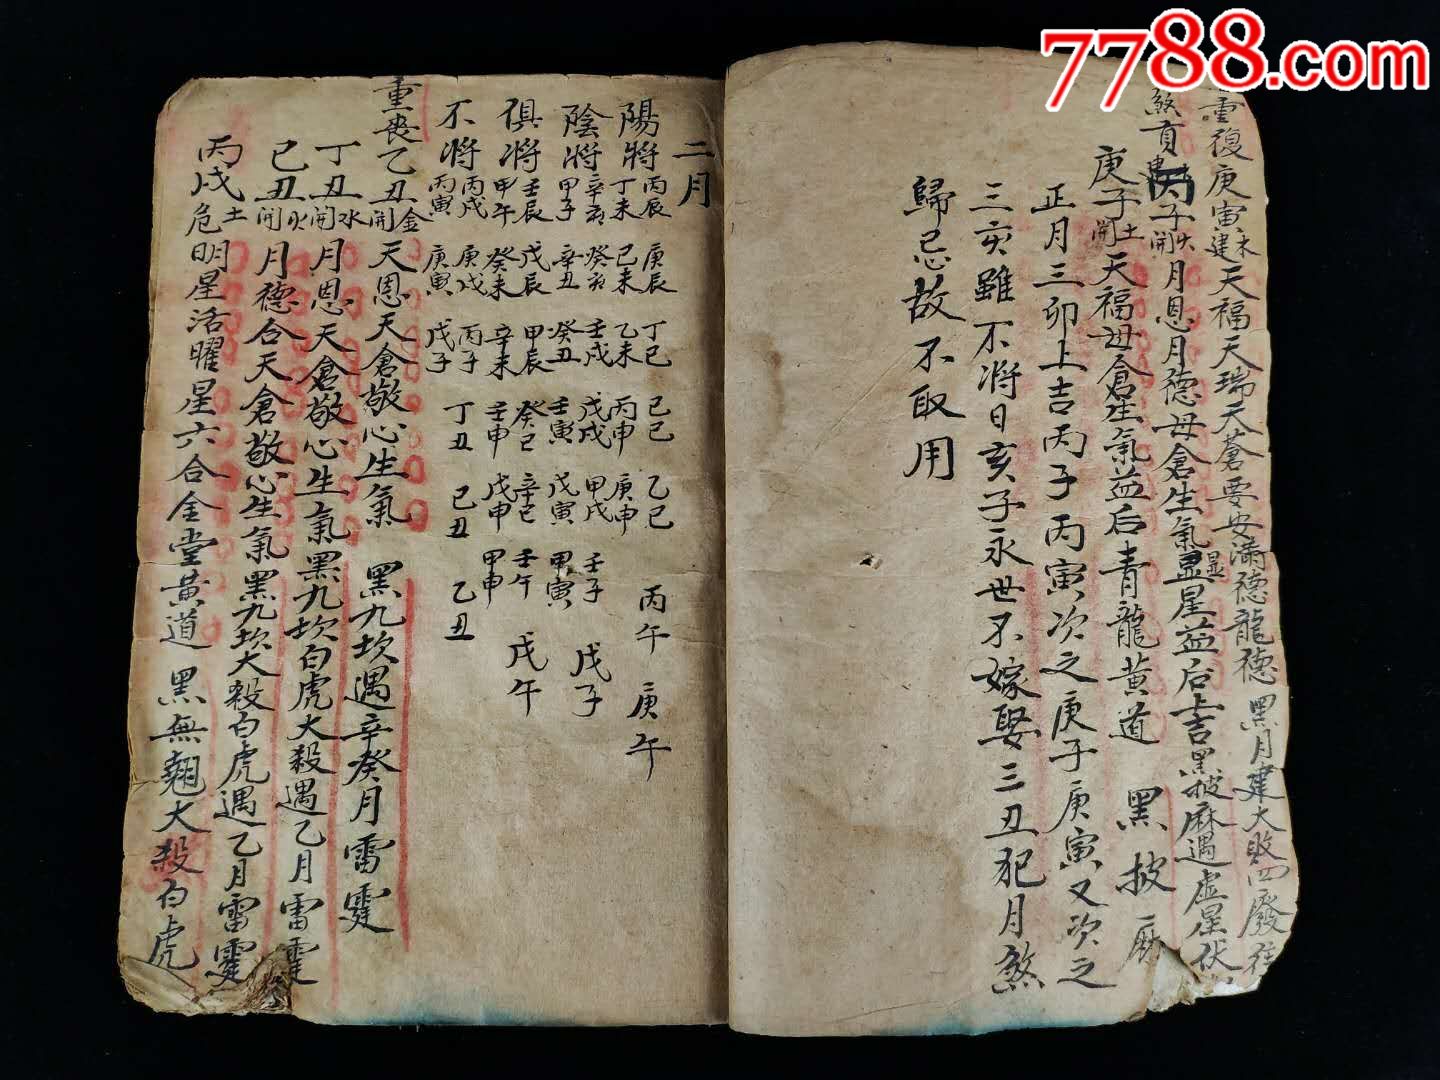 7788.com
重復庚寅木建天福天瑞天蒼要安滿德龍德 黑月建大敗四廢往
煞貢
丙子水開月恩月德母倉生氣显星益后上吉黑披麻遇虛星伏
庚子土開天福母倉生氣益后青龍黄道 黑披麻
正月三卯上吉丙子丙寅次之庚子庚寅又次之
三亥雖不将日亥子永世不嫁娶三丑犯月煞
歸忌故不取用
二月
陽将 丙辰 庚辰 丁巳 己巳 乙巳 丙午 庚午
丁未 己未 乙未 丙申 庚申
陰将 辛亥 癸亥 壬戌 戊戌 甲戌 壬子 戊子
甲子 辛丑 癸丑 壬寅 戊寅 甲寅
俱将 壬辰 戊辰 甲辰 癸巳 辛巳 壬午 戊午
甲午 癸未 辛未 壬申 戊申 甲申
不将 丙戌 庚戌 丙子
丙寅 庚寅 戊子 丁丑 己丑 乙丑
重丧乙丑金開天恩天倉敬心生氣 黑九坎遇辛癸月雷霆
丁丑水開月恩天倉敬心生氣黑九坎白虎大殺遇乙月雷霆
己丑火開月德合天倉敬心生氣黑九坎大殺白虎遇乙月雷霆
丙戌土危明星活曜星六合金堂黄道 黑無翹大殺白虎